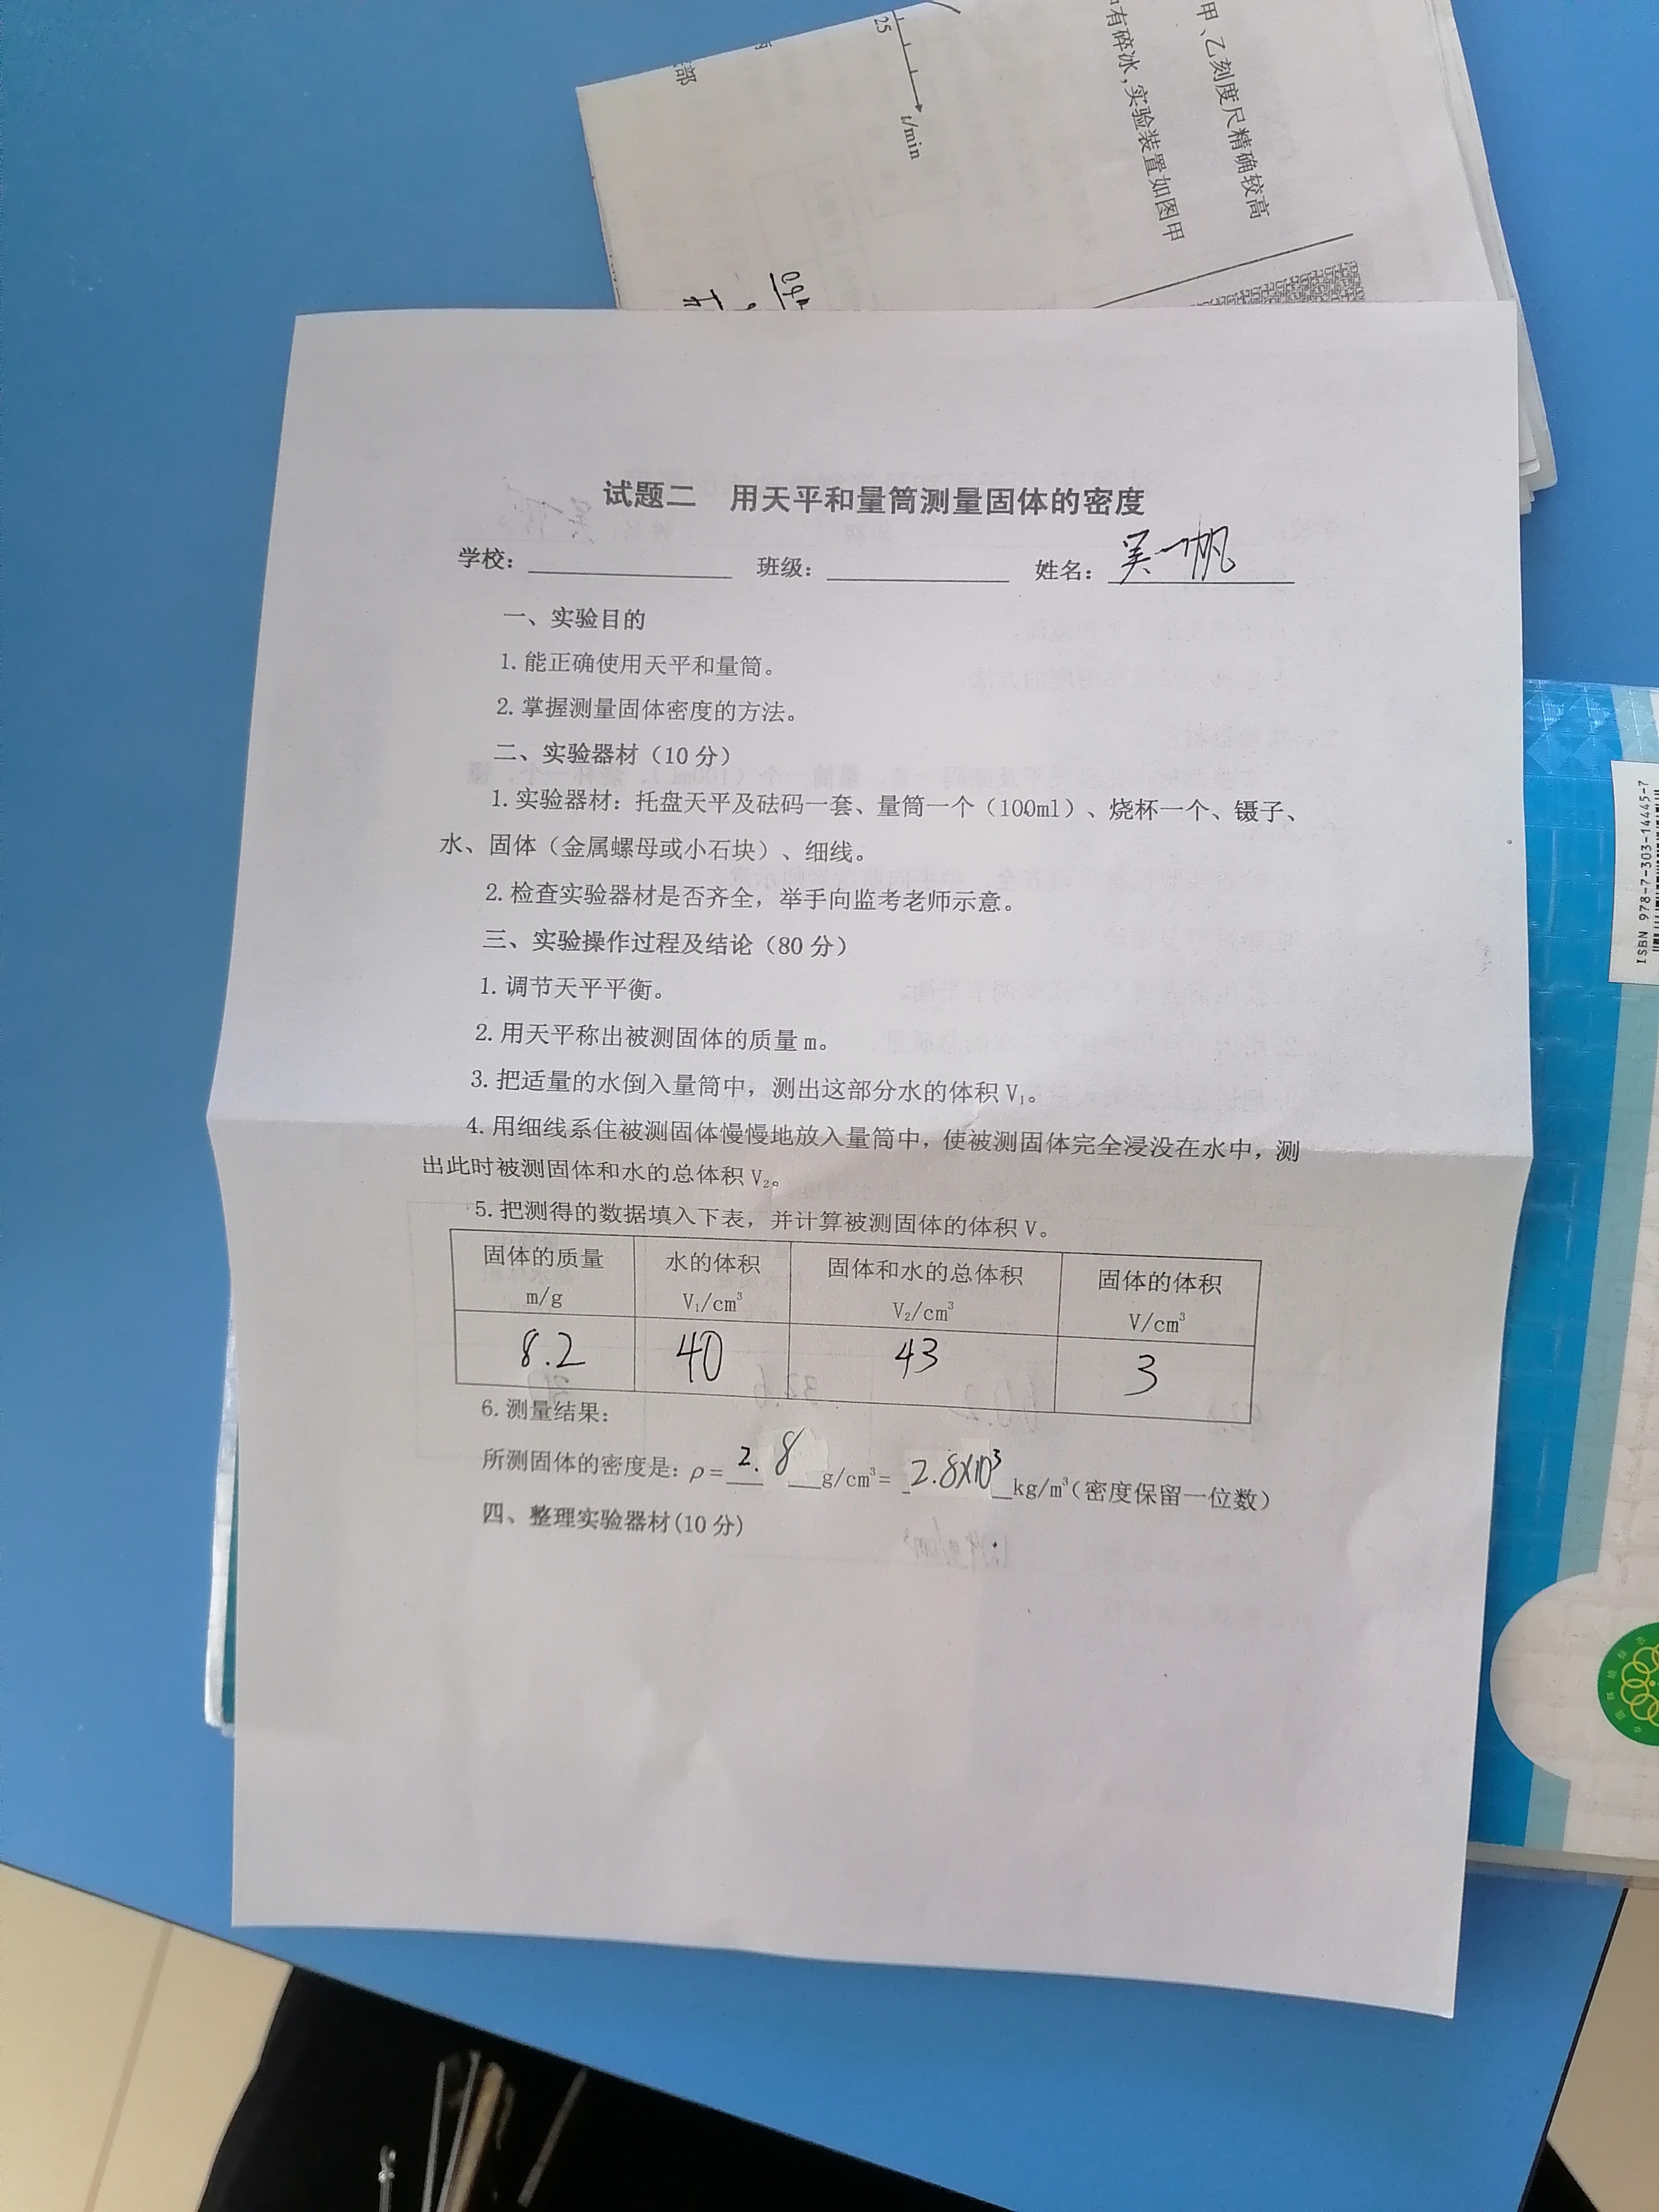 25
t/min
部
甲、乙刻度尺精确较高
有碎冰,实验装置如图甲
试题二 用天平和量筒测量固体的密度
学校: 班级: 姓名: 吴一帆
一、实验目的
1. 能正确使用天平和量筒。
2. 掌握测量固体密度的方法。
二、实验器材(10 分)
1. 实验器材: 托盘天平及砝码一套、量筒一个(100ml)、烧杯一个、镊子、
水、固体(金属螺母或小石块)、细线。
2. 检查实验器材是否齐全,举手向监考老师示意。
三、实验操作过程及结论(80 分)
1. 调节天平平衡。
2. 用天平称出被测固体的质量 m。
3. 把适量的水倒入量筒中,测出这部分水的体积 V₁。
4. 用细线系住被测固体慢慢地放入量筒中,使被测固体完全浸没在水中,测
出此时被测固体和水的总体积 V₂。
5. 把测得的数据填入下表,并计算被测固体的体积 V。
固体的质量 水的体积 固体和水的总体积 固体的体积
m/g V₁/cm³ V₂/cm³ V/cm³
8.2 40 43 3
6. 测量结果:
所测固体的密度是: ρ= 2.8 g/cm³= 2.8×10³ kg/m³(密度保留一位数)
四、整理实验器材(10 分)
ISBN 978-7-303-14445-7